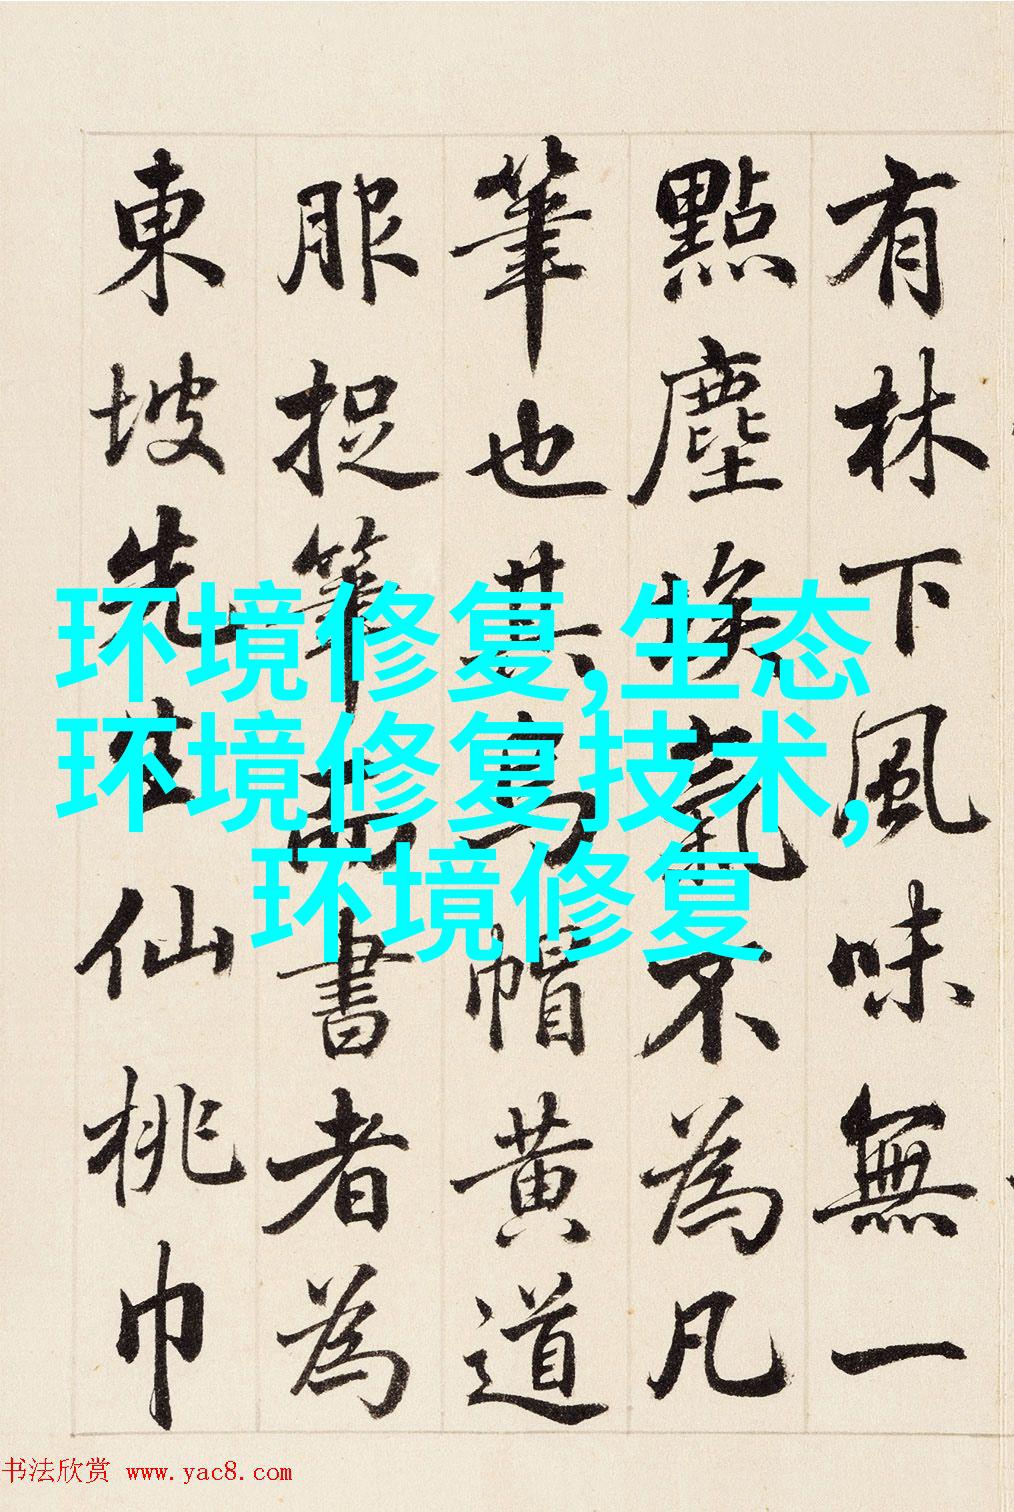 有林下風味無一
點塵氣不為凡
筆也其烏帽黃道
服捉筆而書者為
東坡先生仙桃巾
环境修复,生态
环境修复技术,
环境修复
书法欣赏 www.yac8.com